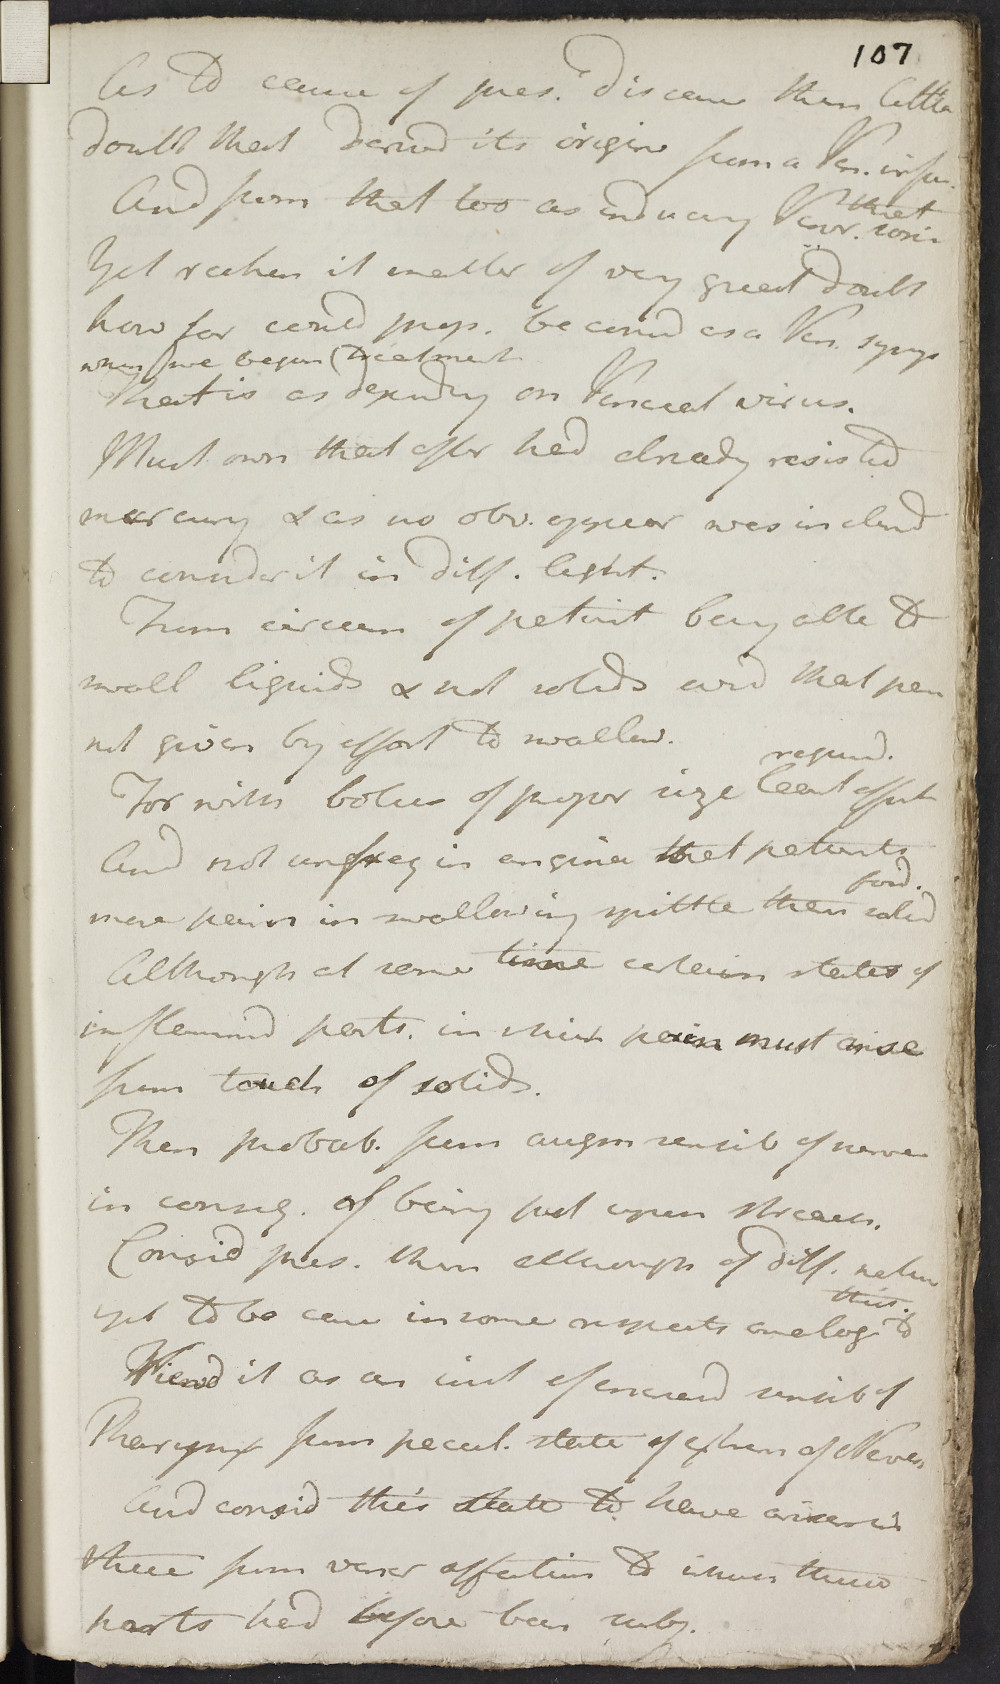 107
As to cause of pres. disease then little
doubt that derived its origin from a Ven. infec.
And from that too as inducing Vener. that
Yet reckon it matter of very great doubt
how far could prop. be consid as a Ven. symp
when we began treatment
That is as depending on Venereal virus.
Must own that after had already resisted
mercury & as no obv. appear was inclined
to consider it in diff. light.
From circum of patient being able to
swall liquids & not solids evid that pain
not given by effort to swallow.
requird.
For with bolus of proper size least effort
And not unfreq in angina that patients
food.
more pain in swallowing spittle then solid
Although at same time certain states of
inflammd parts. in which pain must arise
from touch of solids.
Then probab. from augm sensib of nerves
in conseq. of being put upon stretch.
Consid pres. then although of diff. nature
this.
yet to be case in some respects analog to
Viewd it as an inst of increasd sensib of
Pharynx from pecul. state of extrem of Nerves
And consid this state to have arisen in
these from vener affection to which these
parts had before been subj.